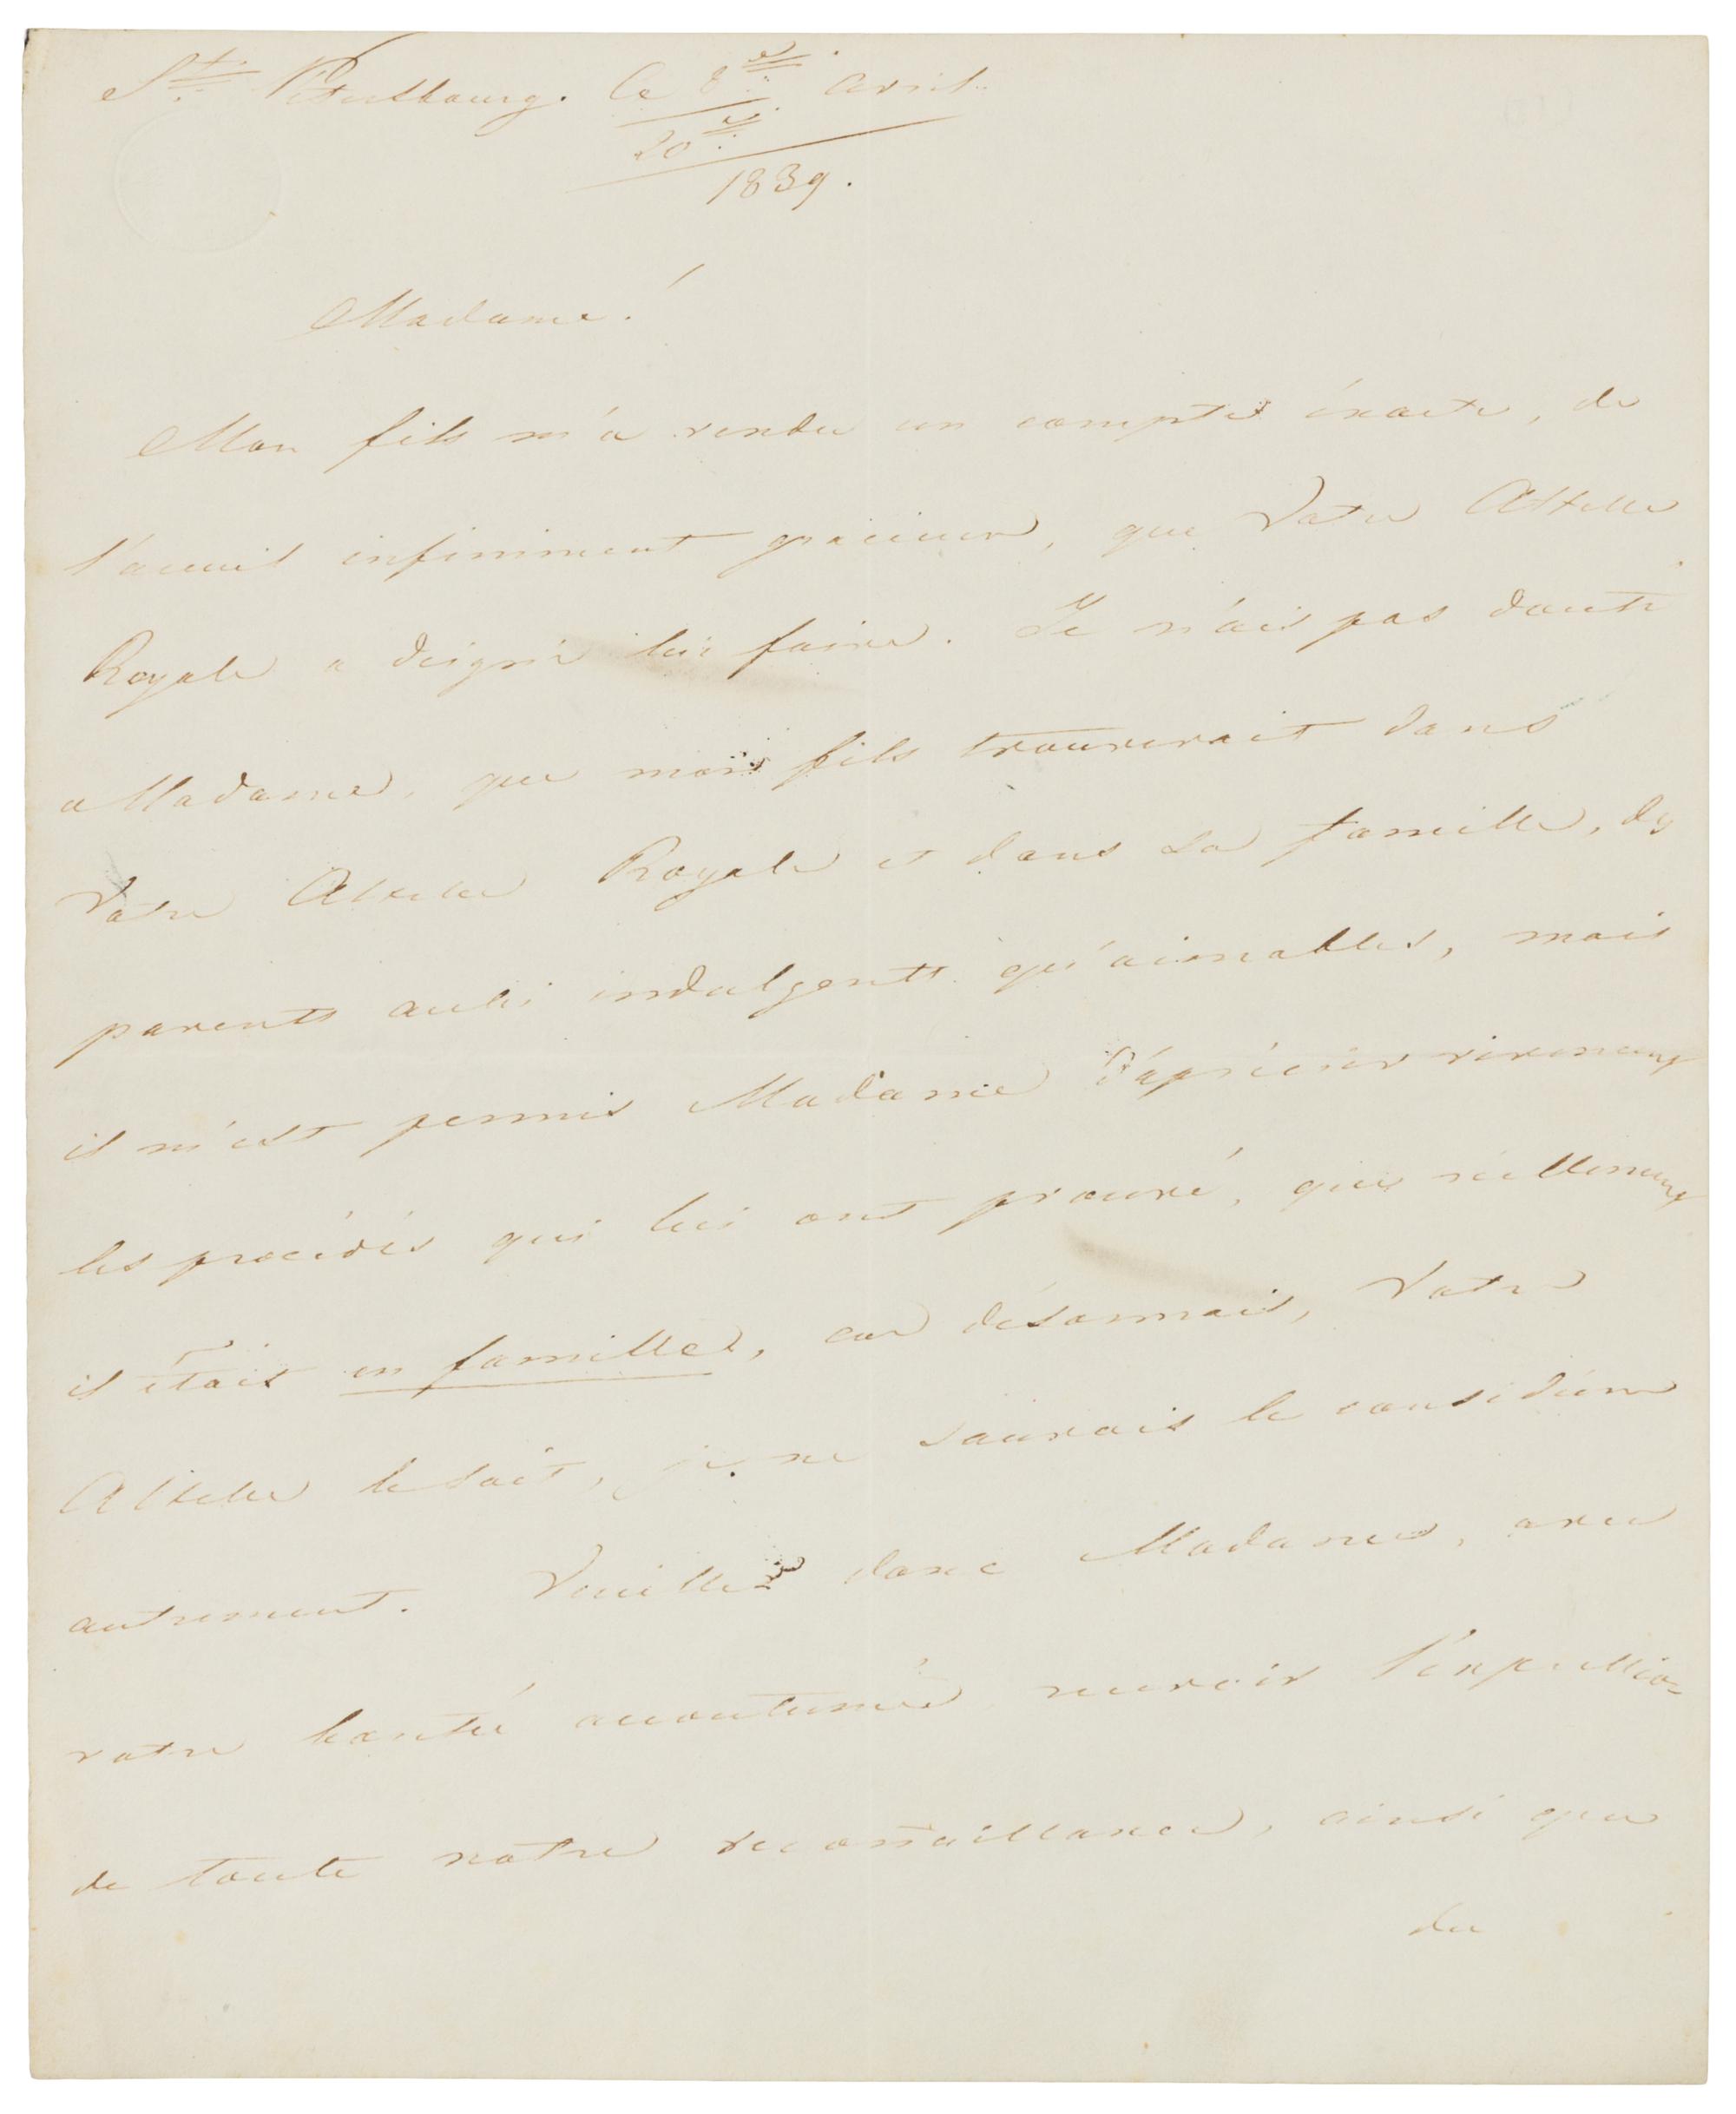 St. Petersbourg. Ce 8 Avril.
20
1839.
Madame!
Mon fils m'a rendu un compte éxacte, de
l'accueil infiniment gracieux, que Votre Altesse
Royale a deigné lui faire. Je n'ais pas douté
Madame, que mon fils trouverait dans
Votre Altesse Royale et dans Sa famille, des
parents aussi indulgents qu'aimables, mais
il m'est permis Madame d'apprécier vivement
les procédés qui lui ont prouvé, que réellement
il était en famille, car désormais, Votre
Altesse le sait, je ne saurais le considérer
autrement. Veuillez donc Madame, avec
votre bonté accoutumée recevoir l'expression
de toute notre reconnaissance, ainsi que
du